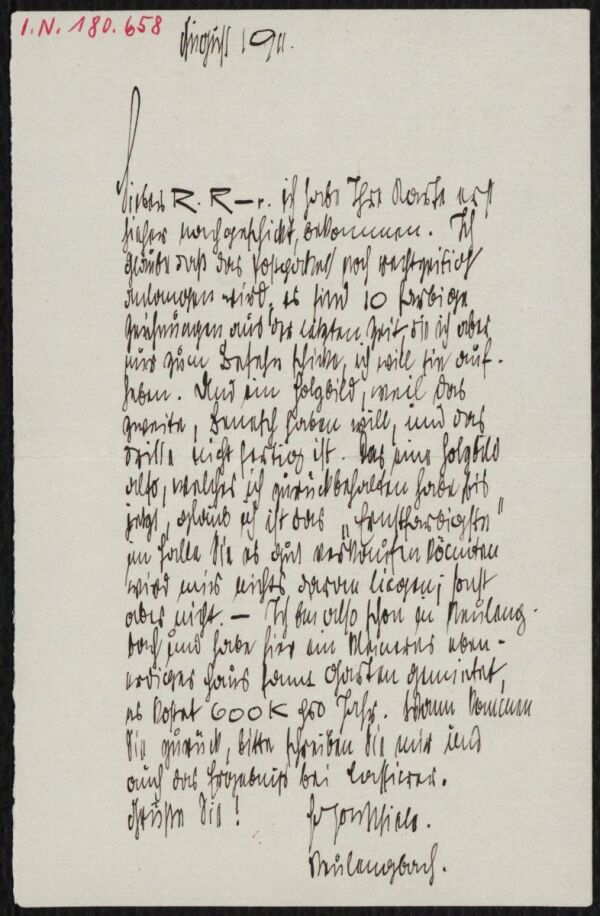 I.N. 180.658
August 1911.
Lieber R. R–r. ich habe Ihre Karte erst
hieher nachgeschickt, bekommen. Ich
glaube daß das Postpaket noch rechtzeitich
anlangen wird, es sind 10 farbige
Zeichnungen aus der letzten Zeit, die ich aber
nur zum Ansehn schicke, ich will sie auf-
heben. Und ein Holzbild, weil das
zweite, Benesch haben will, und das
dritte nicht fertig ist. Das eine Holzbild
also, welches ich zurückbehalten habe bis
jetzt, glaub ich ist das „Ernstfarbigste"
im Falle Sie es gut verkaufen könnten
wird mir nichts daran liegen; sonst
aber nicht. — Ich bin also schon in Neuleng-
bach und habe hier ein kleineres eben-
erdiges Haus samt Garten gemietet,
es kostet 600 K pro Jahr. Wann kommen
Sie zurück, bitte schreiben Sie mir und
auch das Ergebniß bei Cassierer.
Grüße Sie! Egon Schiele.
Neulengbach.